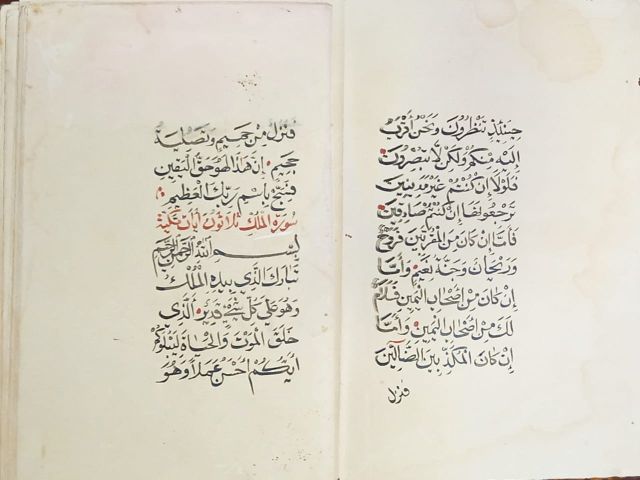 حِينَئِذٍ تَنْظُرُونَ وَنَحْنُ أَقْرَبُ
إِلَيْهِ مِنْكُمْ وَلَكِنْ لَا تُبْصِرُونَ
فَلَوْلَا إِنْ كُنْتُمْ غَيْرَ مَدِينِينَ
تَرْجِعُونَهَا إِنْ كُنْتُمْ صَادِقِينَ
فَأَمَّا إِنْ كَانَ مِنَ الْمُقَرَّبِينَ فَرَوْحٌ
وَرَيْحَانٌ وَجَنَّةُ نَعِيمٍ وَأَمَّا
إِنْ كَانَ مِنْ أَصْحَابِ الْيَمِينِ فَسَلَامٌ
لَكَ مِنْ أَصْحَابِ الْيَمِينِ وَأَمَّا
إِنْ كَانَ الْمُكَذِّبِينَ الضَّالِّينَ
فَنُزُلٌ
فَنُزُلٌ مِنْ حَمِيمٍ وَتَصْلِيَةُ
جَحِيمٍ إِنَّ هَذَا لَهُوَ حَقُّ الْيَقِينِ
فَسَبِّحْ بِاسْمِ رَبِّكَ الْعَظِيمِ
سُورَةُ الْمُلْكِ ثَلَاثُونَ آيَاتٍ مَكِّيَّة
بِسْمِ اللَّهِ الرَّحْمَنِ الرَّحِيمِ
تَبَارَكَ الَّذِي بِيَدِهِ الْمُلْكُ
وَهُوَ عَلَى كُلِّ شَيْءٍ قَدِيرٌ الَّذِي
خَلَقَ الْمَوْتَ وَالْحَيَاةَ لِيَبْلُوَكُمْ
أَيُّكُمْ أَحْسَنُ عَمَلًا وَهُوَ